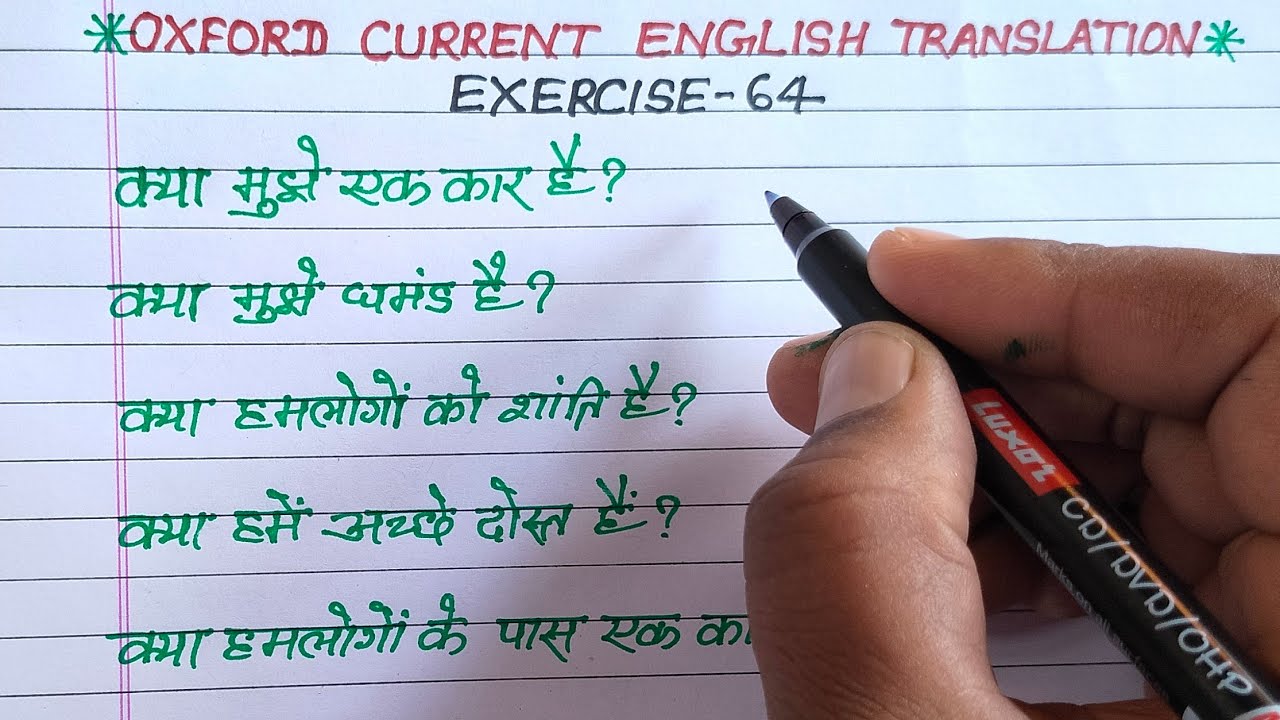 *OXFORD CURRENT ENGLISH TRANSLATION*
EXERCISE-64
क्या मुझे एक कार है?
क्या मुझे घमंड है?
क्या हमलोगों को शांति है?
क्या हमें अच्छे दोस्त हैं?
क्या हमलोगों के पास एक
LUXOR
CD/DVD/OHP